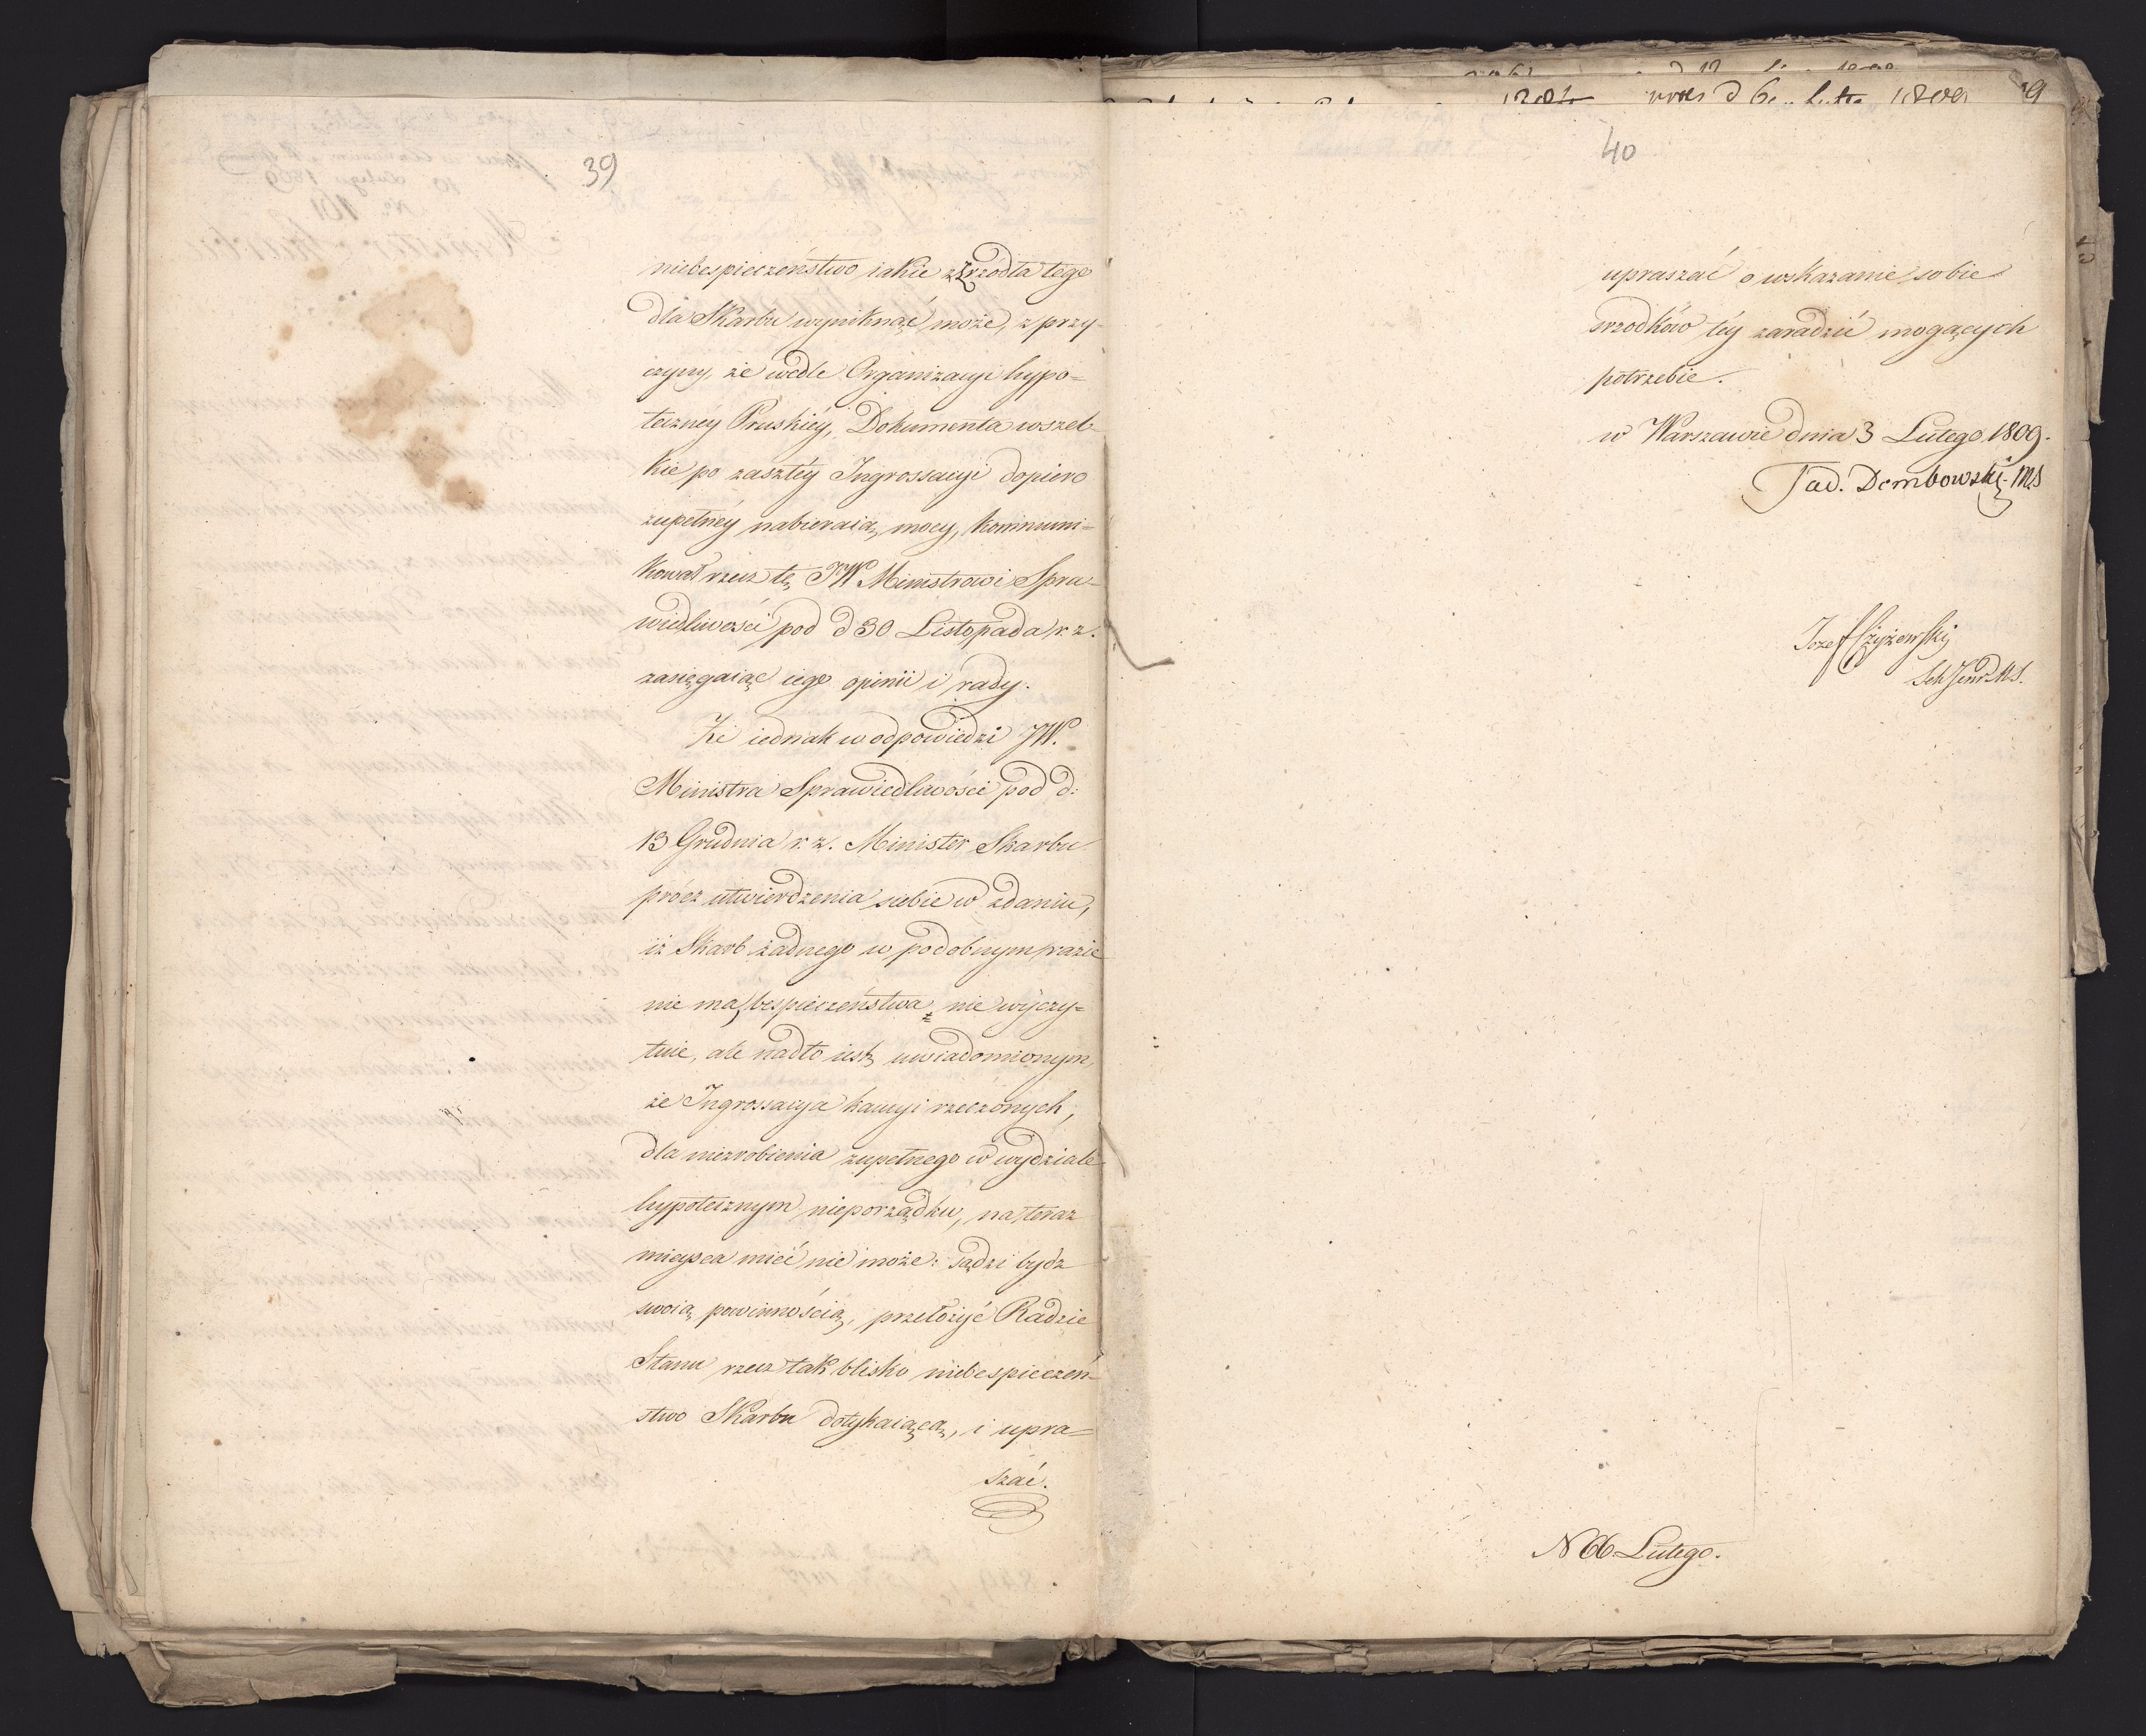 39
niebespieczeństwo iakie z zrzódła tego
dla Skarbu wyniknąć może, z przy-
czyny, że wedle Organizacyi hypo=
teczney Pruskiéy, Dokumenta wszel-
kie po zaszłéy Ingrossacyi dopiero
zupełnéy nabieraią mocy, kommuni=
kował rzecz tę JW Ministrowi Spra-
wiedliwości pod d 30 Listopada r. z.
zasięgaiąc iego opinii i rady.
Że iednak w odpowiedzi JW.
Ministra Sprawiedliwości pod d:
13 Grudnia r. z. Minister Skarbu
prócz utwierdzenia siebie w zdaniu,
iż Skarb żadnego w podobnym razie
nie ma bespieczeństwa, nie wyczy=
tuie, ale nadto iest uwiadomionym,
że Ingrossacya kaucyi rzeczonych,
dla niezrobienia zupełnego w wydziale
hypotecznym nieporządku, na teraz
mieysca mieć nie może: sądzi bydz
swoią powinnością, przełożyć Radzie
Stanu rzecz tak blisko niebespieczeń-
stwo Skarbu dotykaiącą, i upra=
szać.
40
upraszać o wskazanie sobie
srzodków téy zaradzić mogących
potrzebie.
w Warszawie dnia 3 Lutego 1809.
Tad. Dembowski. MS
Jozef Czyżewski
Sek Jener MS.
N 66 Lutego.